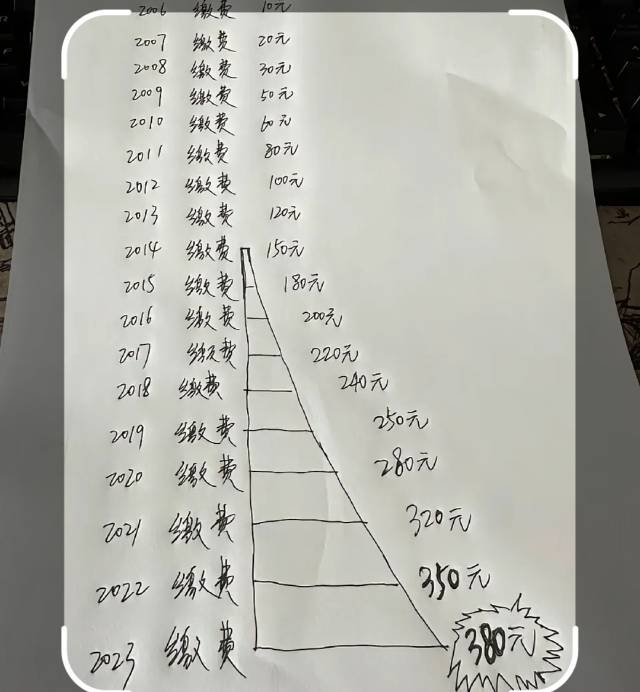 2006 缴费 10元
2007 缴费 20元
2008 缴费 30元
2009 缴费 50元
2010 缴费 60元
2011 缴费 80元
2012 缴费 100元
2013 缴费 120元
2014 缴费 150元
2015 缴费 180元
2016 缴费 200元
2017 缴费 220元
2018 缴费 240元
2019 缴费 250元
2020 缴费 280元
2021 缴费 320元
2022 缴费 350元
2023 缴费 380元